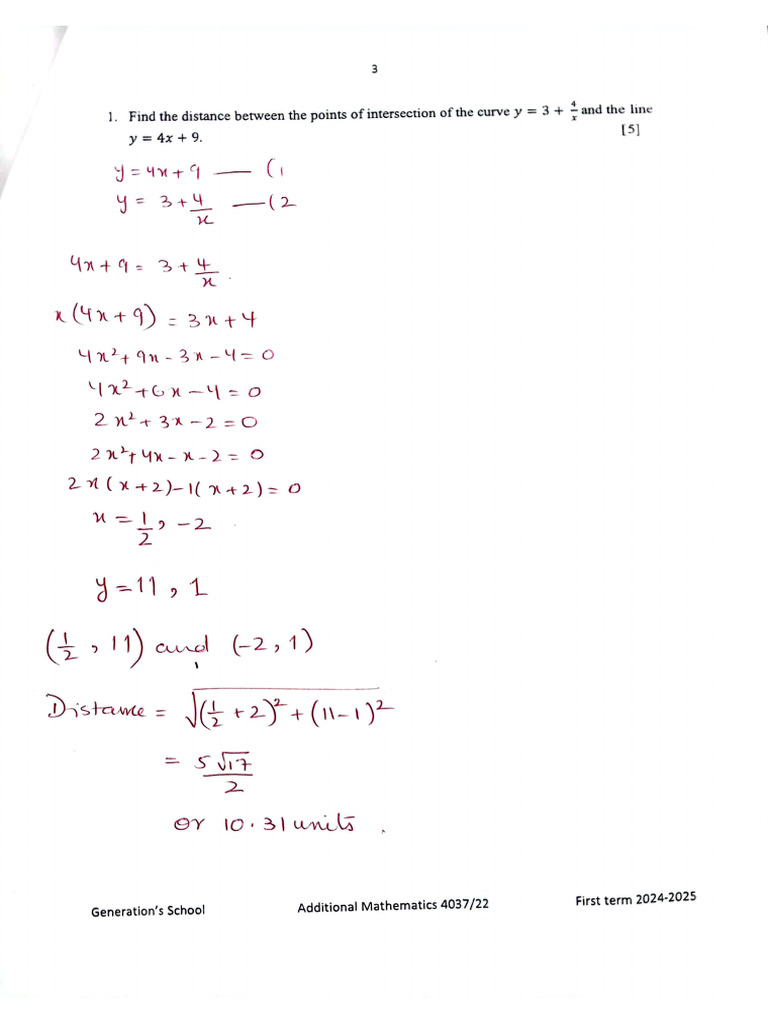 3
1. Find the distance between the points of intersection of the curve y = 3 + 4/x and the line
y = 4x + 9. [5]
y = 4x + 9 — (1
y = 3 + 4/x — (2
4x + 9 = 3 + 4/x.
x(4x + 9) = 3x + 4
4x² + 9x - 3x - 4 = 0
4x² + 6x - 4 = 0
2x² + 3x - 2 = 0
2x² + 4x - x - 2 = 0
2x(x + 2) - 1(x + 2) = 0
x = 1/2, -2
y = 11, 1
(1/2, 11) and (-2, 1)
Distance = √((1/2 + 2)² + (11 - 1)²)
= 5√17/2
or 10.31 units.
Generation's School Additional Mathematics 4037/22 First term 2024-2025